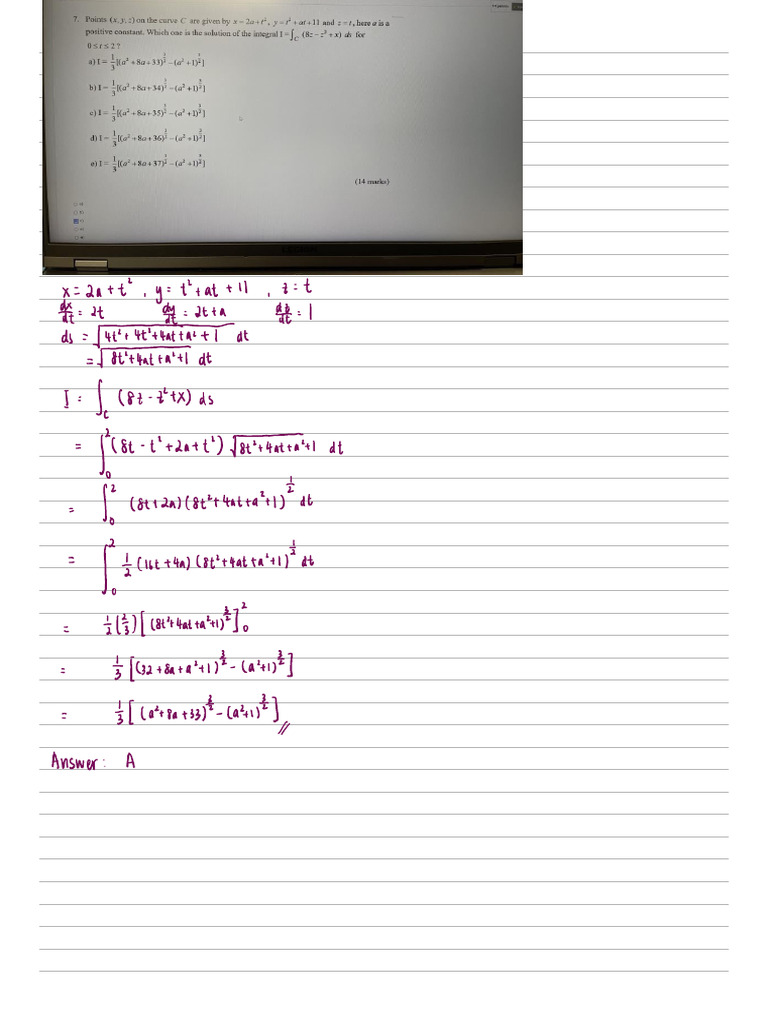 7. Points (x, y, z) on the curve C are given by x = 2a + t², y = t² + at + 11 and z = t, here a is a
positive constant. Which one is the solution of the integral I = ∫_C (8z − z² + x) ds for
0 ≤ t ≤ 2 ?
a) I = 1/3[(a² + 8a + 33)^(3/2) − (a² + 1)^(3/2)]
b) I = 1/3[(a² + 8a + 34)^(3/2) − (a² + 1)^(3/2)]
c) I = 1/3[(a² + 8a + 35)^(3/2) − (a² + 1)^(3/2)]
d) I = 1/3[(a² + 8a + 36)^(3/2) − (a² + 1)^(3/2)]
e) I = 1/3[(a² + 8a + 37)^(3/2) − (a² + 1)^(3/2)]
(14 marks)
x = 2a + t² , y = t² + at + 11 , z = t
dx/dt = 2t dy/dt = 2t + a dz/dt = 1
ds = √(4t² + 4t² + 4at + a² + 1) dt
= √(8t² + 4at + a² + 1) dt
I = ∫_C (8z - z² + x) ds
= ∫_0^2 (8t - t² + 2a + t²) √(8t² + 4at + a² + 1) dt
= ∫_0^2 (8t + 2a) (8t² + 4at + a² + 1)^(1/2) dt
= ∫_0^2 1/2 (16t + 4a) (8t² + 4at + a² + 1)^(1/2) dt
= 1/2 (2/3) [(8t² + 4at + a² + 1)^(3/2)]_0^2
= 1/3 [(32 + 8a + a² + 1)^(3/2) - (a² + 1)^(3/2)]
= 1/3 [(a² + 8a + 33)^(3/2) - (a² + 1)^(3/2)] //
Answer: A